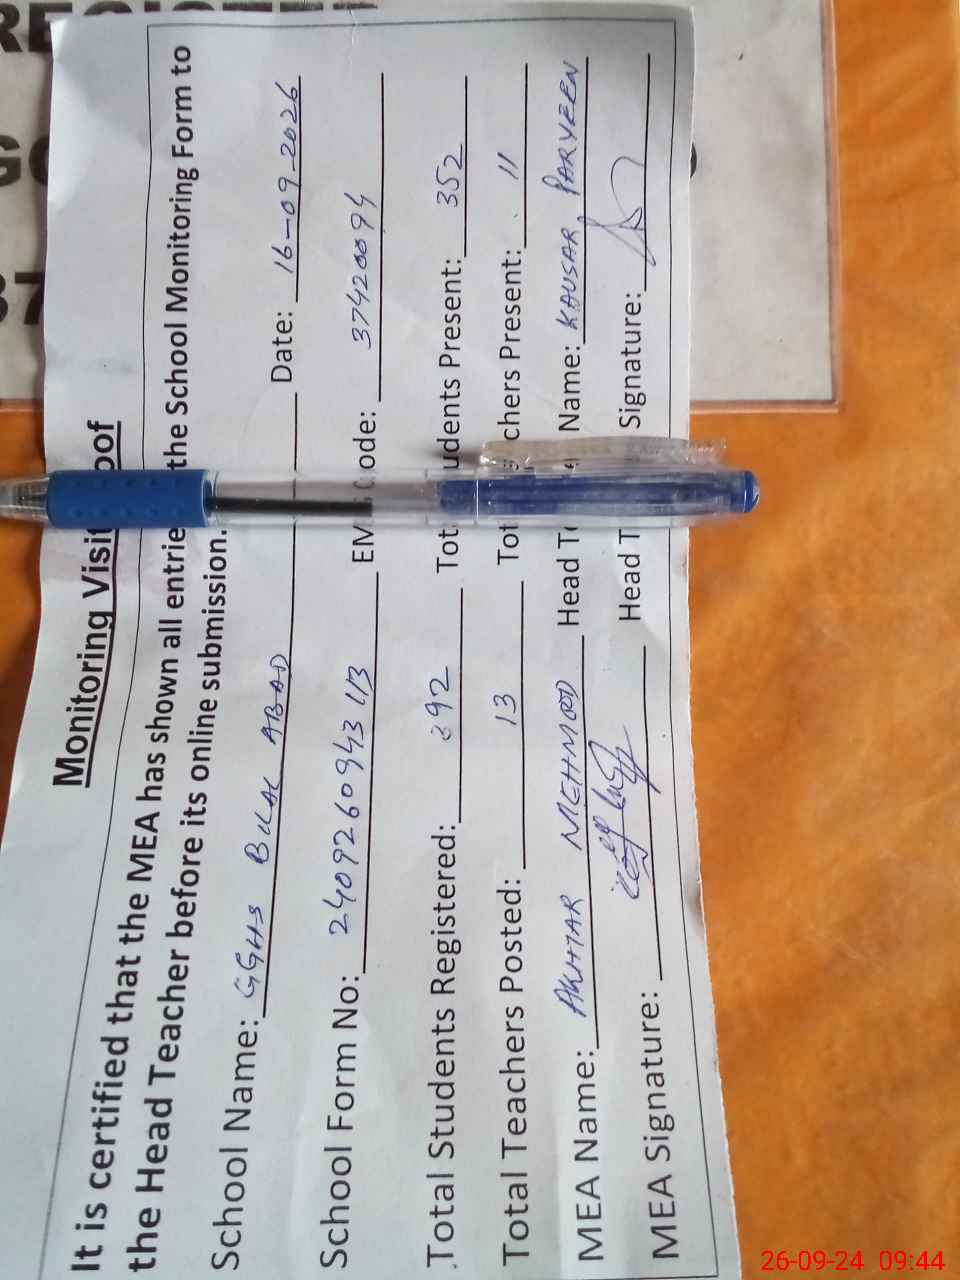 REGISTER
Monitoring Visit Proof
It is certified that the MEA has shown all entries the School Monitoring Form to
the Head Teacher before its online submission.
School Name: GGHS BILAL ABAD Date: 16-09-2026
School Form No: 2409260943 113 EM code: 37420094
Total Students Registered: 392 Total Students Present: 352
Total Teachers Posted: 13 Total Teachers Present: 11
MEA Name: AKHTAR MEHMOOD Head Te Name: KAUSAR PARVEEN
MEA Signature: Head T Signature:
26-09-24 09:44